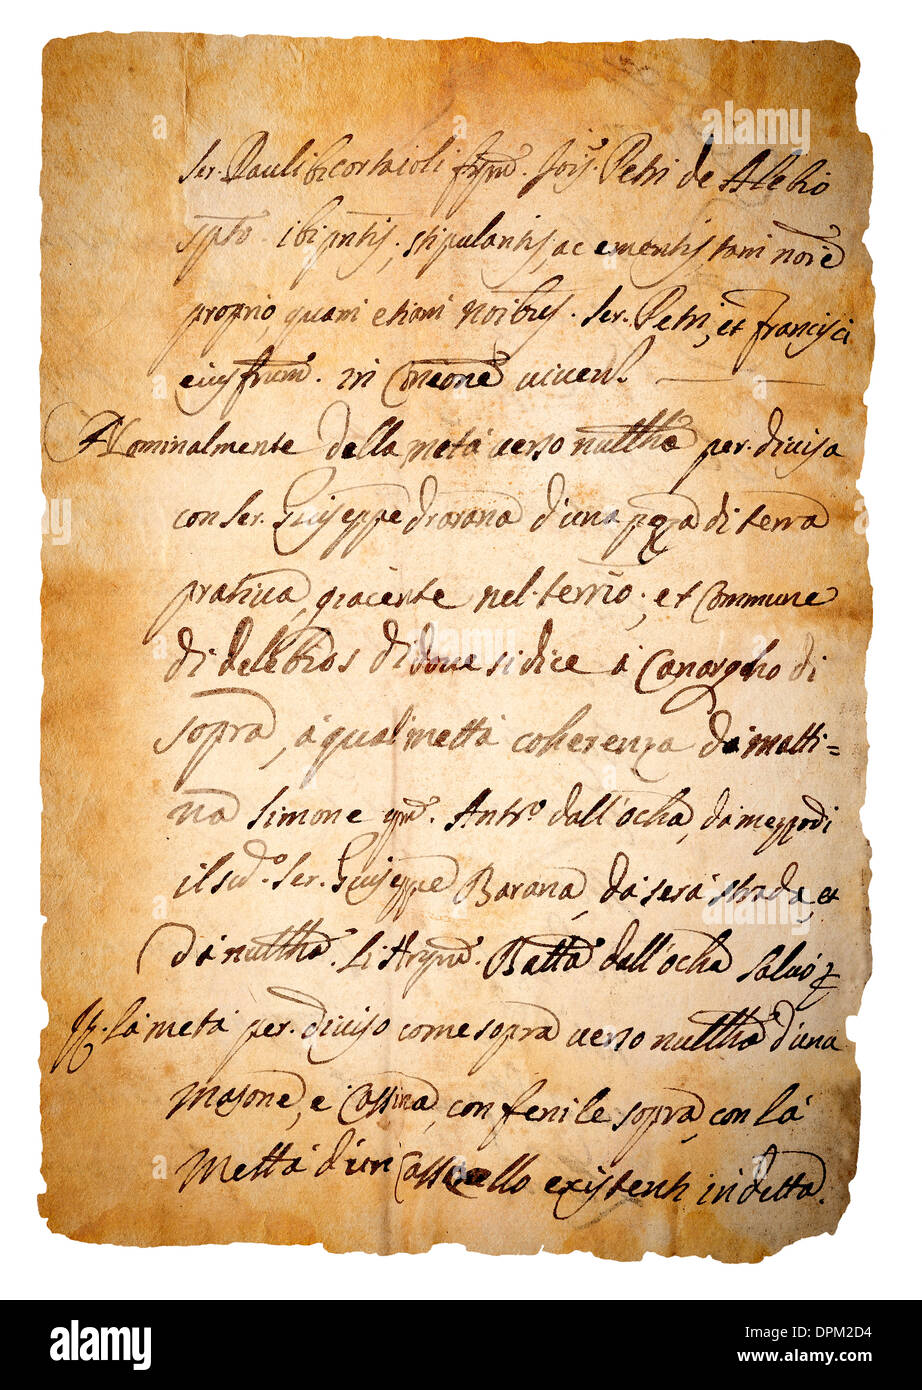 Ser. Pauli bicortaioli fqm̃. Jois. Petri de Alebio
spto. ibi pñtis. stipulantis, ac ementis, tam noĩe
proprio, quam etiam noĩbus. Ser. Petri, et francisci
eius frum̃. in Comone viven.
Nominalmente della metà verso nullhã per. divisa
con Ser. Giuseppe Barana d'una pezza di terra
prativa, giacente nel terrio., et Commune
di delebios di dove si dice à Canargho di
sopra, à qual mettà coherenza da matti=
na Simone qm̃. Antᵒ dall'ocha, da mezzodi
il sudᵒ. Ser. Giuseppe Barana, da sera strada, et
da nullhã. Li qm̃. Battã dall'ocha salvo
It. la metà per. diviso come sopra verso nullhã d'una
Masone, e Cassina, con fenile sopra, con la
Mettà d'un existenti in detta.
alamy
a
Image ID: DPM2D4
www.alamy.com